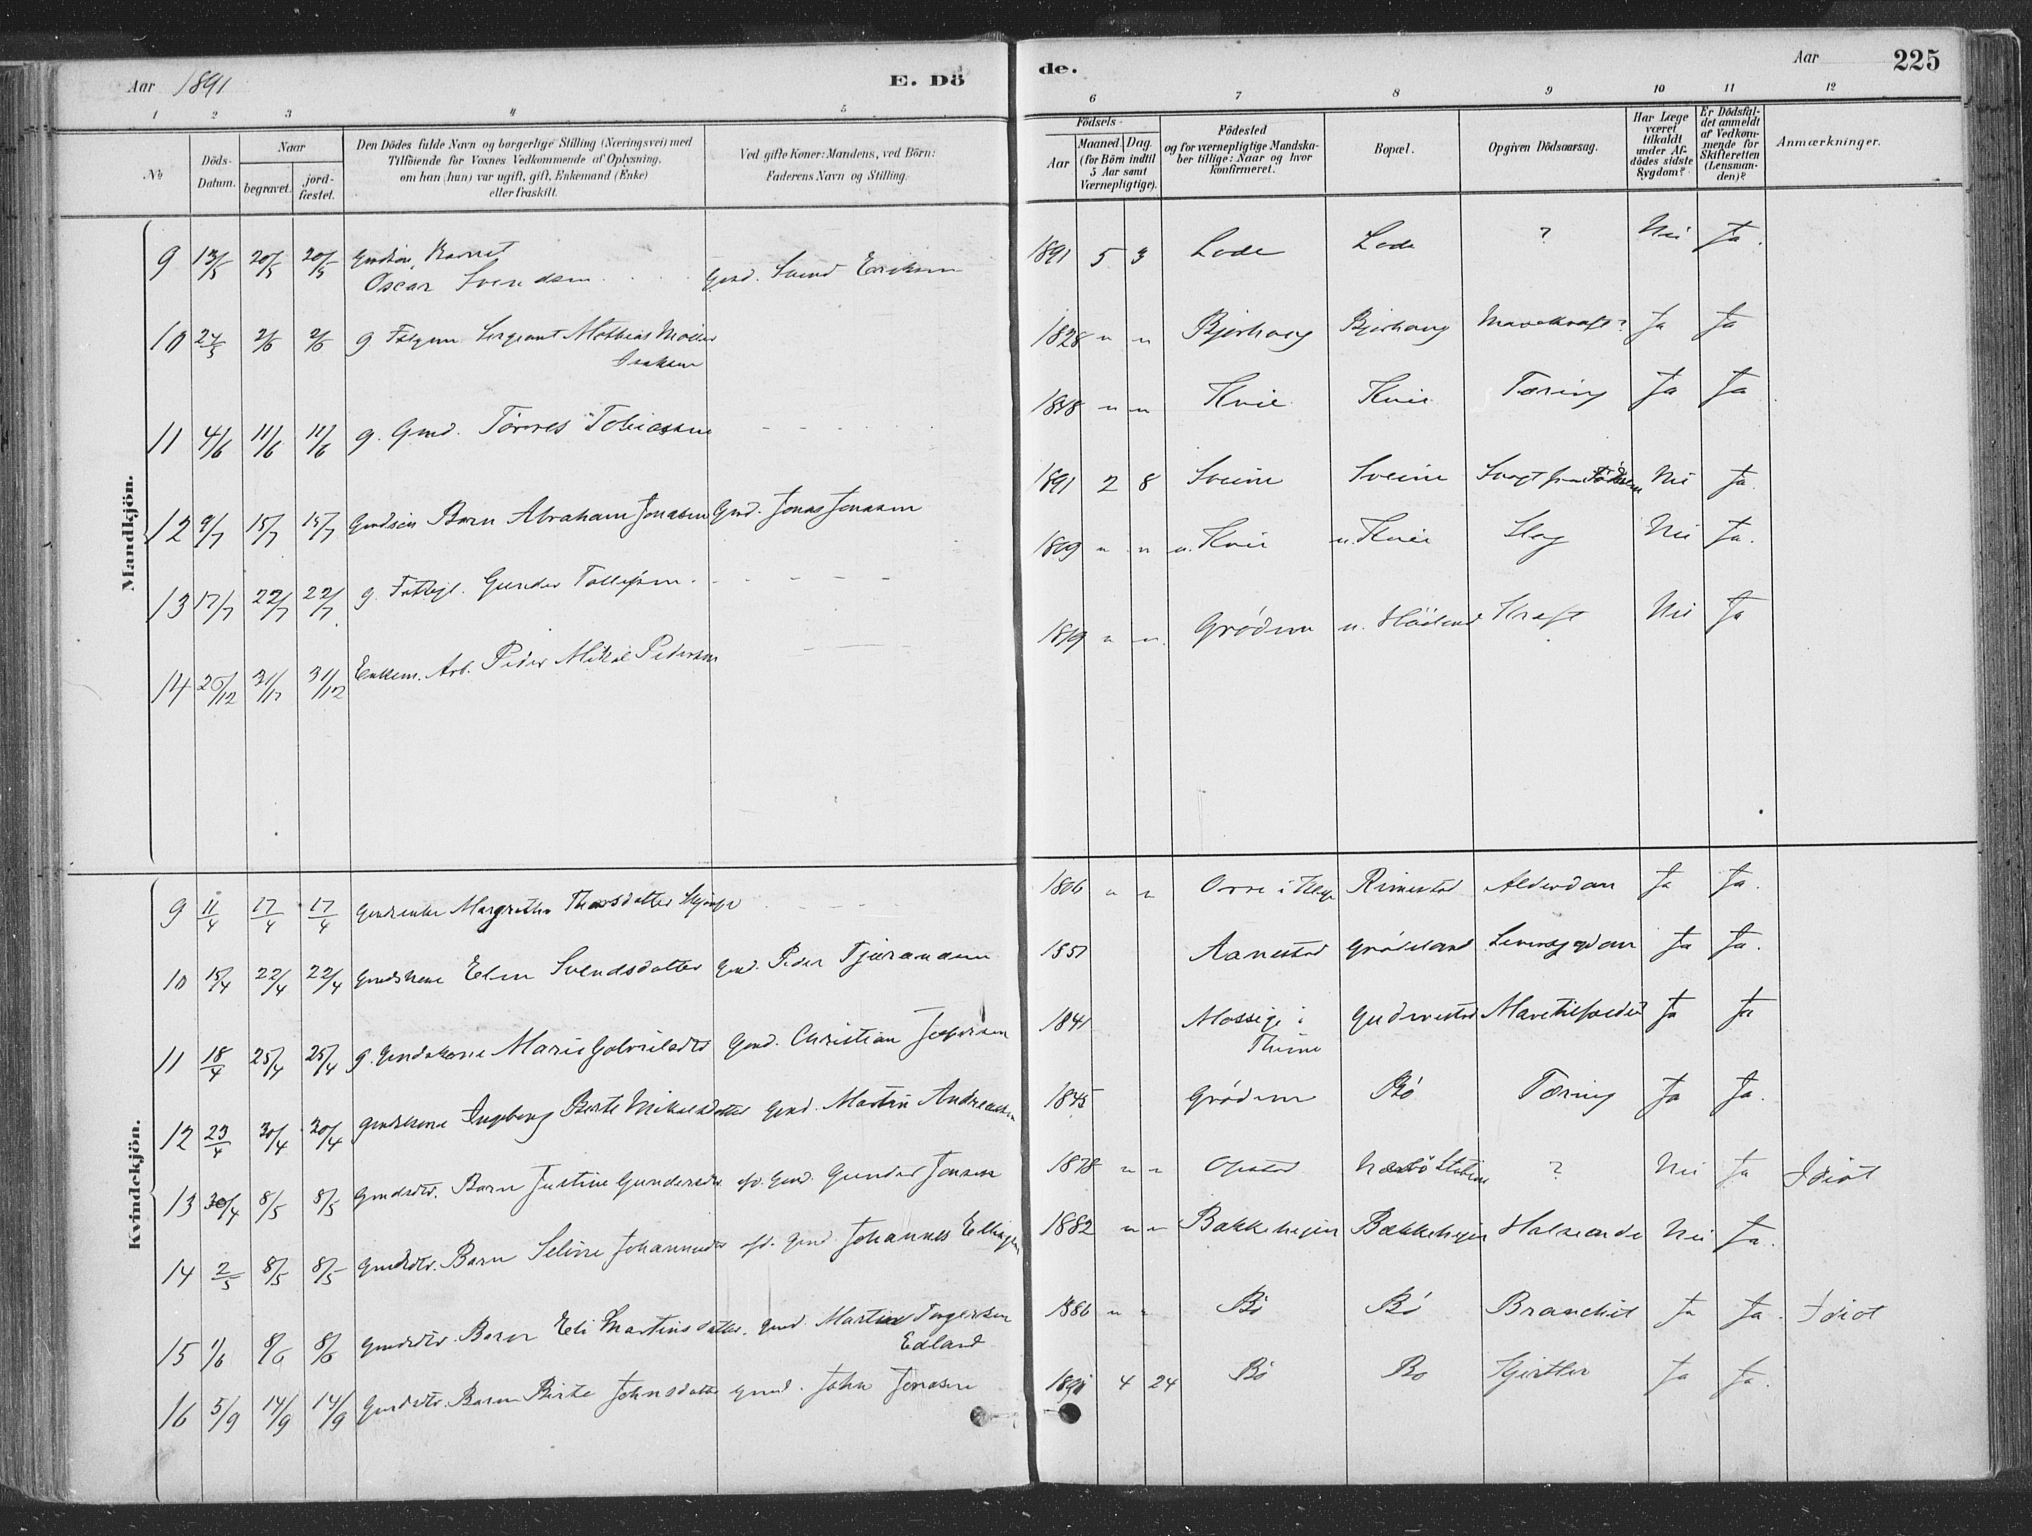 Aar 1891
E. Dö
de.
Aar
225
1 2 3 4 5 6 7 8 9 10 11 12
No
Döds-Datum.
Naar
begravet.
jord-fæstet.
Den Dödes fulde Navn og borgerlige Stilling (Næringsvei) med
Tilföiende for Voxnes Vedkommende af Oplysning,
om han (hun) var ugift, gift, Enkemand (Enke)
eller fraskilt.
Ved gifte Koner: Mandens, ved Börn:
Faderens Navn og Stilling.
Födsels-
Aar
Maaned. Dag.
(for Börn indtil
5 Aar samt
Værnepligtige).
Födested
og for værnepligtige Mandska-
ber tillige: Naar og hvor
konfirmeret.
Bopæl.
Opgiven Dödsaarsag.
Har Læge
været
tilkaldt
under Af-
dödes sidste
Sygdom?
Er Dödsfal-
det anmeldt
af Vedkom-
mende for
Skifteretten
(Lensman-
den)?
Anmærkninger.
Mandkjön.
9 13/5 20/5 20/5 Gmdsön, Barnet
Oscar Svendsen Gmd. Svend Eriksen 1891 5 3 Lode Lode ? Nei Ja.
10 24/5 2/6 2/6 g. Sergeant Mathias Möller
Isaksen 1828 " " Bjorhaug Bjorhaug Mavekræft? Ja Ja
11 4/6 11/6 11/6 g. Gmd. Törres Tobiassen 1848 " " Kvie Kvie Tæring Ja Ja
12 9/7 15/7 15/7 Gmdsön Barn Abraham Jonasen Gmd. Jonas Jonasen 1891 2 8 Sveine Sveine Svagt fra Födselen Nei Ja.
13 17/7 22/7 22/7 g. Gunder Tollefsen 1809 " " n. Kvie n. Kvie Slag Nei Ja.
14 20/12 31/12 31/12 Enkem. Arb. Peder Mikal Pedersen 1819 " " Grödem n. Höiland Kræft Nei Ja
Kvindekjön.
9 11/4 17/4 17/4 Gmdsenke Margrethe 1806 " " Orre i Klep Rimestad Alderdom Ja Ja.
10 15/4 22/4 22/4 Gmdskone Elen Svendsdatter Gmd. Peder Tjerandsen 1857 Aanestad Grödeland Leversygdom Ja Ja.
11 18/4 25/4 25/4 g. Gmdskone Marie Gabrielsdtr Gmd. Christian Jespersen 1841 Mossige i
Thime Gudmestad Mavetilfælde Ja Ja
12 23/4 30/4 30/4 Gmdskone Ingeborg Berte Mikalsdatter Gmd. Martin Andreassen 1845 Grödem Bö Tæring Ja Ja.
13 30/4 8/5 8/5 Gmdsdtr. Barn Justine Gundersdtr. af. Gmd. Gunder Jonsen 1878 " " Opstad Nærbö Station ? Nei Ja Idiot
14 2/5 8/5 8/5 Gmdsdtr. Barn Seline Johannesdtr af. Gmd Johannes Ellingsen 1882 " " Bakkehejen Bakkehejen Halsonde Nei Ja.
15 1/6 8/6 8/6 Gmdsdtr. Barn Eli Martinsdatter. Gmd. Martin Torgersen
Edland 1886 " " Bö Bö Bronchit Ja Ja. Idiot
16 5/9 14/9 14/9 Gmdsdtr. Barn Birte Johnsdatter Gmd. John Jonasen 1891 4 24 Bö Bö Ja Ja.